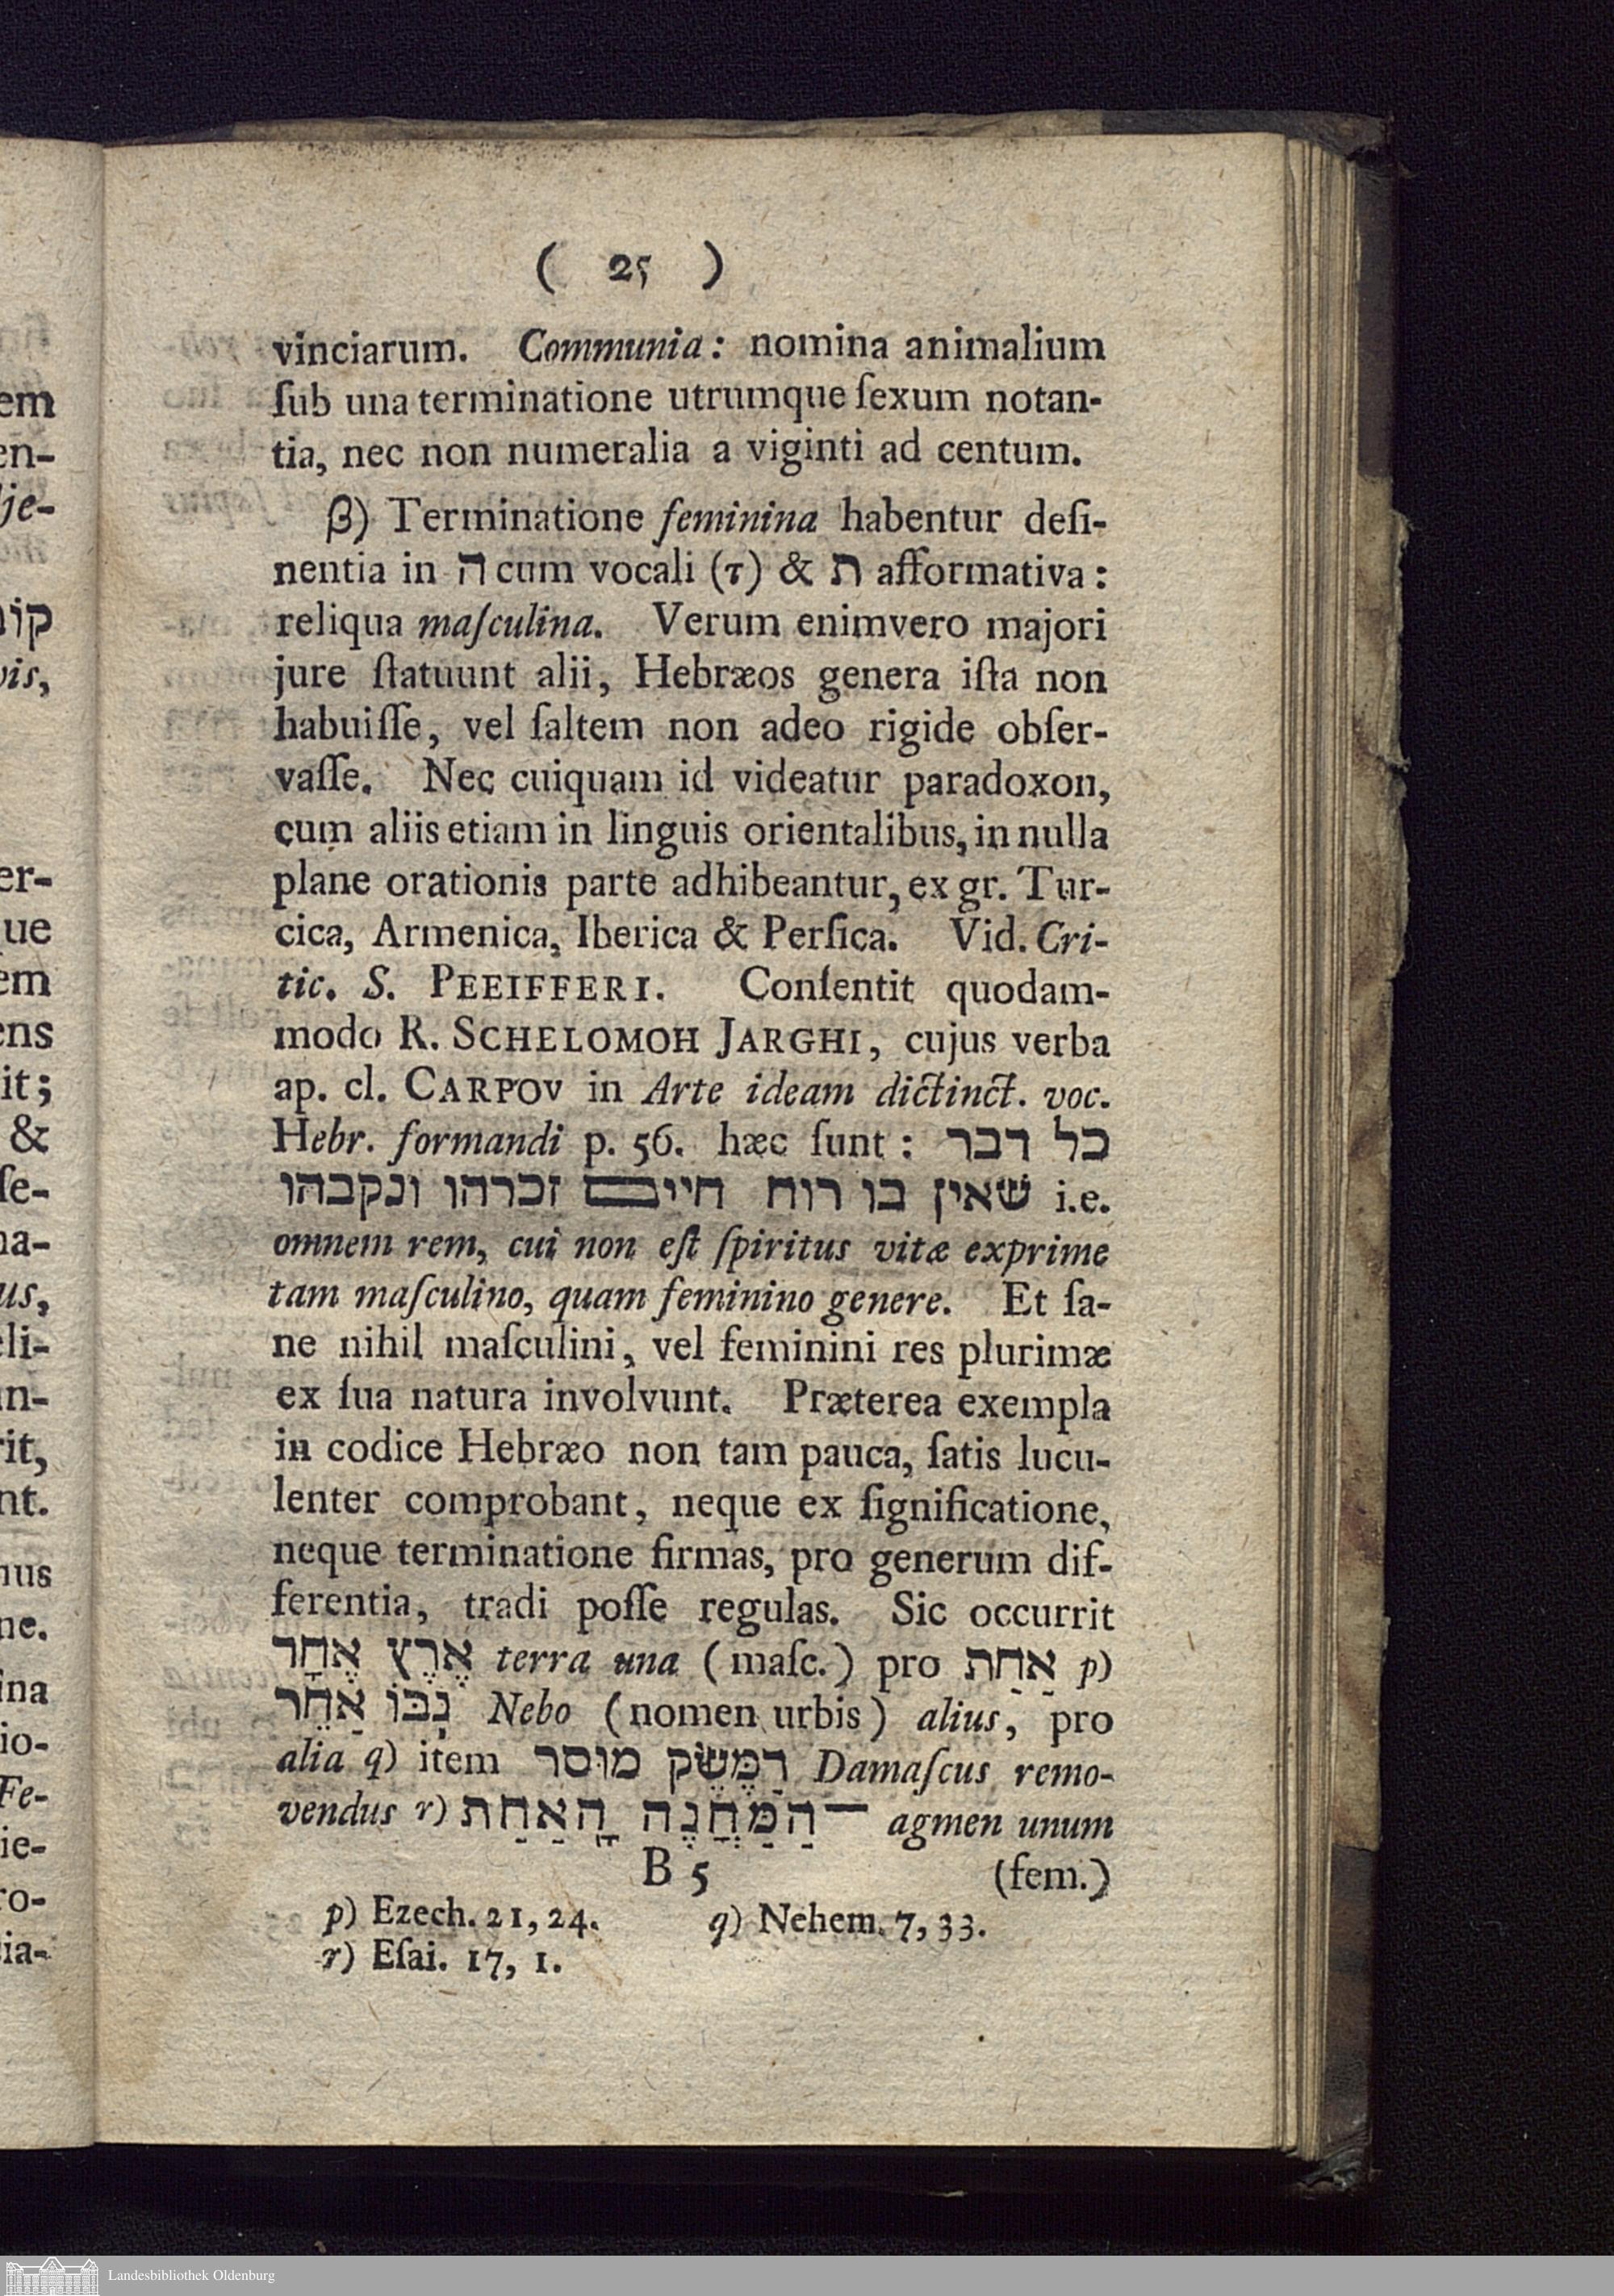 ( 25 )
vinciarum. Communia: nomina animalium
ſub una terminatione utrumque ſexum notan-
tia, nec non numeralia a viginti ad centum.
β) Terminatione feminina habentur deſi-
nentia in ה cum vocali (τ) & ת afformativa:
reliqua maſculina. Verum enimvero majori
jure ſtatuunt alii, Hebræos genera iſta non
habuiſſe, vel ſaltem non adeo rigide obſer-
vaſſe. Nec cuiquam id videatur paradoxon,
cum aliis etiam in linguis orientalibus, in nulla
plane orationis parte adhibeantur, ex gr. Tur-
cica, Armenica, Iberica & Perſica. Vid. Cri-
tic. S. PEEIFFERI. Conſentit quodam-
modo R. SCHELOMOH JARGHI, cujus verba
ap. cl. CARPOV in Arte ideam dictinct. voc.
Hebr. formandi p. 56. hæc ſunt: כל דבר
שאין בו רוח חיים זכרהו ונקבהו i.e.
omnem rem, cui non eſt ſpiritus vitæ exprime
tam maſculino, quam feminino genere. Et ſa-
ne nihil maſculini, vel feminini res plurimæ
ex ſua natura involvunt. Præterea exempla
in codice Hebræo non tam pauca, ſatis lucu-
lenter comprobant, neque ex ſignificatione,
neque terminatione firmas, pro generum dif-
ferentia, tradi poſſe regulas. Sic occurrit
אֶרֶץ אֶחָר terra una (maſc.) pro אַחַת p)
נְבּוֹ אַחֵר Nebo (nomen urbis) alius, pro
alia q) item דַמֶּשֶׂק מוּסר Damaſcus remo-
vendus r) הַמַּחֲנֶה הָאַחַת — agmen unum
B 5 (fem.)
p) Ezech. 21, 24. q) Nehem. 7, 33.
r) Eſai. 17, 1.
em
en-
je-
vis,
er-
que
em
ens
it;
&
ſe-
na-
us,
eli-
in-
rit,
nt.
nus
ne.
ina
io-
Fe-
ie-
ro-
ia-
Landesbibliothek Oldenburg